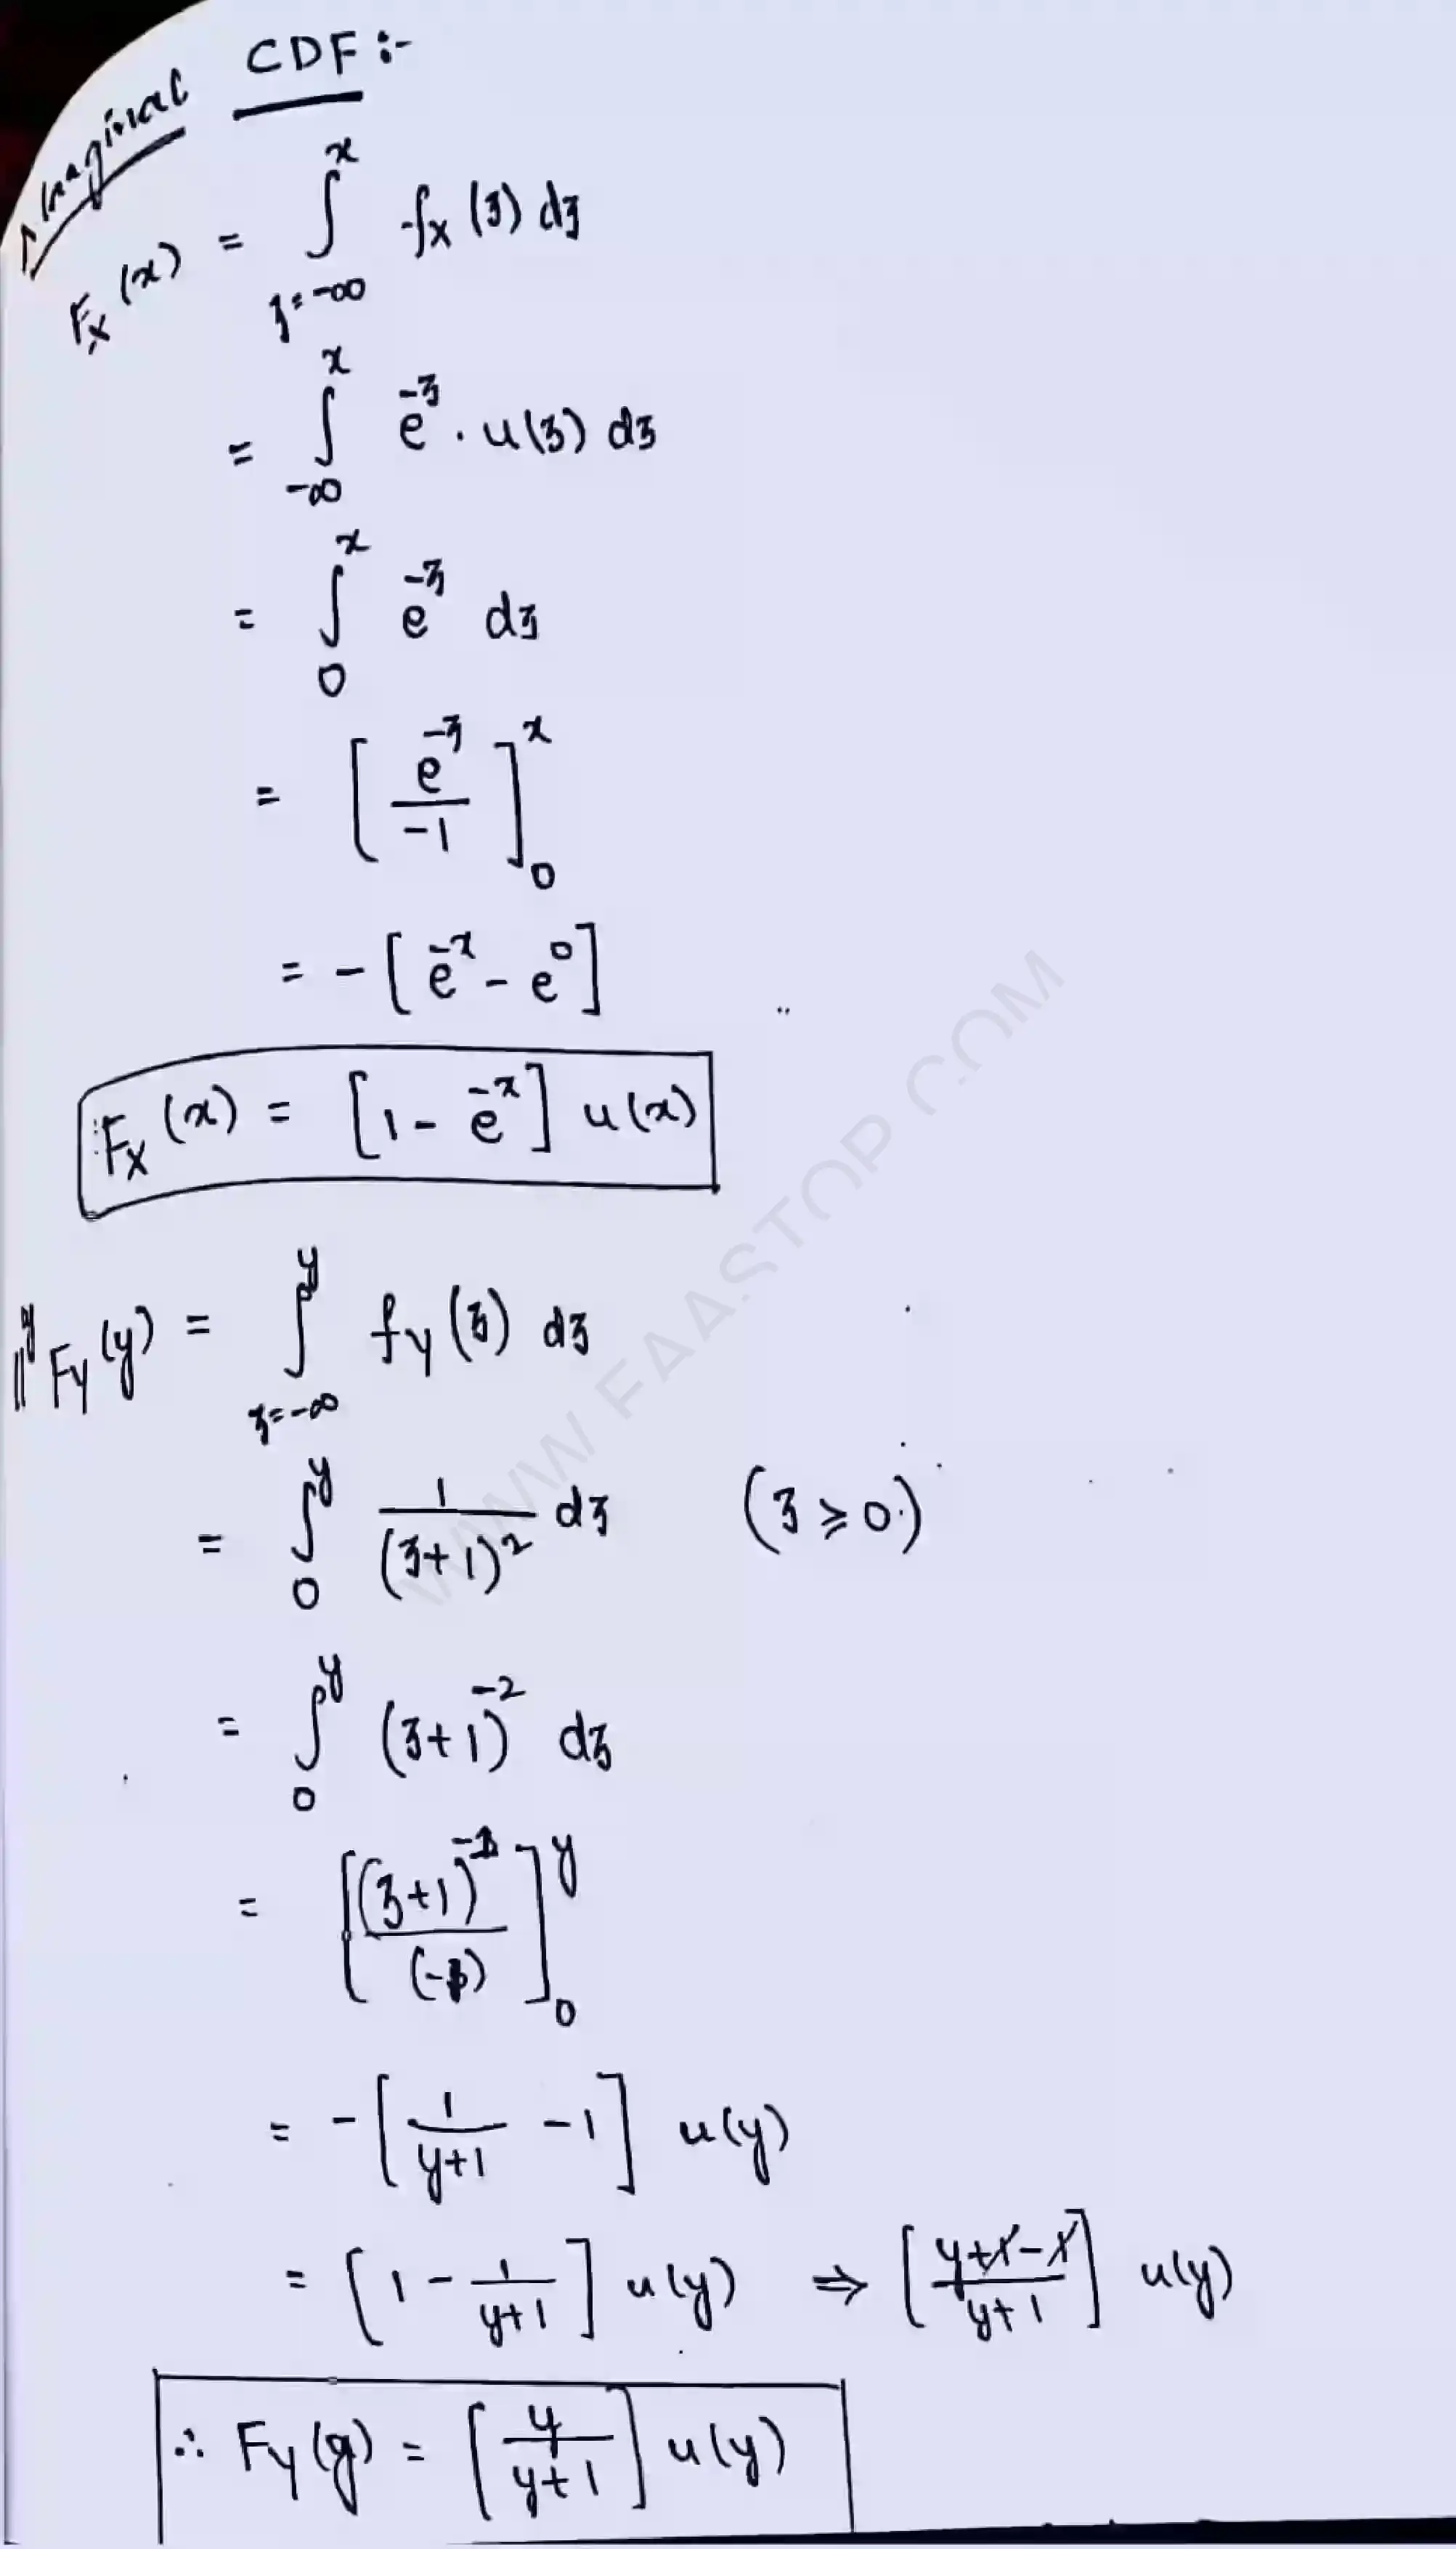 Marginal CDF :-
F_X (x) = ∫_{z=-∞}^{x} f_X (z) dz
= ∫_{-∞}^{x} e^{-z} . u(z) dz
= ∫_{0}^{x} e^{-z} dz
= [ e^{-z} / -1 ]_{0}^{x}
= - [ e^{-x} - e^{0} ]
F_X (x) = [ 1 - e^{-x} ] u(x)
||ly F_Y (y) = ∫_{z=-∞}^{y} f_Y (z) dz
= ∫_{0}^{y} 1 / (z+1)^2 dz (z ≥ 0)
= ∫_{0}^{y} (z+1)^{-2} dz
= [ (z+1)^{-1} / (-1) ]_{0}^{y}
= - [ 1 / y+1 - 1 ] u(y)
= [ 1 - 1 / y+1 ] u(y) ⇒ [ y+1-1 / y+1 ] u(y)
∴ F_Y (y) = [ y / y+1 ] u(y)
WWW.FAASTOP.COM